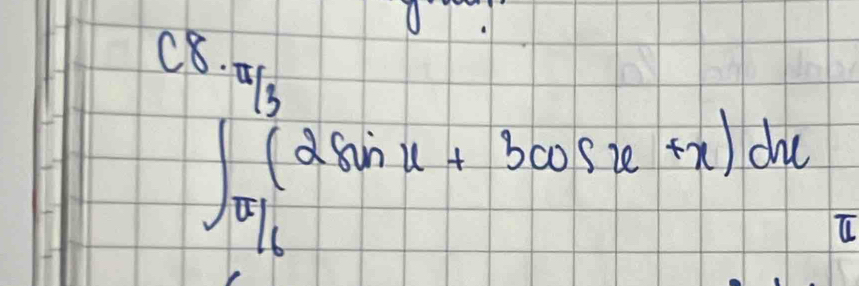 C8.
∫_{π/6}^{π/3} (2sin x + 3cos x + x) dx
π